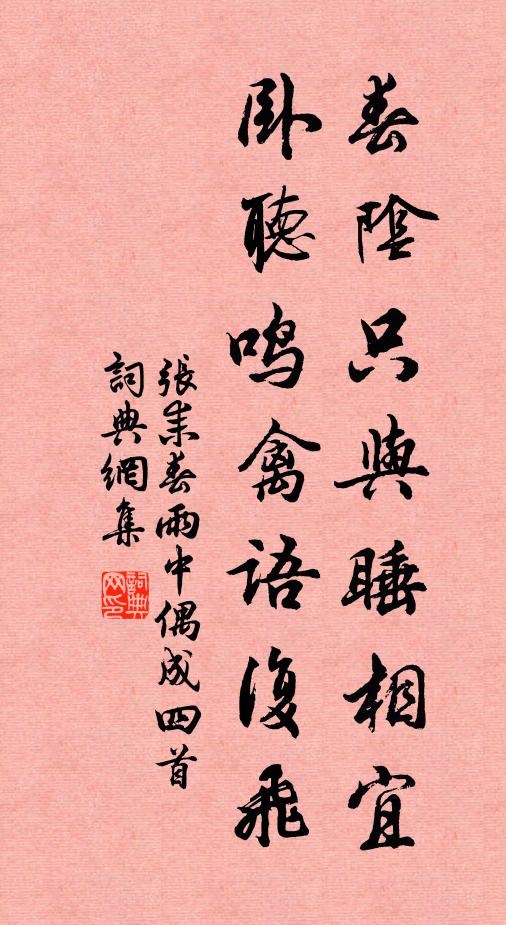 春陰只與睡相宜
卧聽鳴禽語復飛
張耒春雨中偶成四首
詞典網集
詞典网印